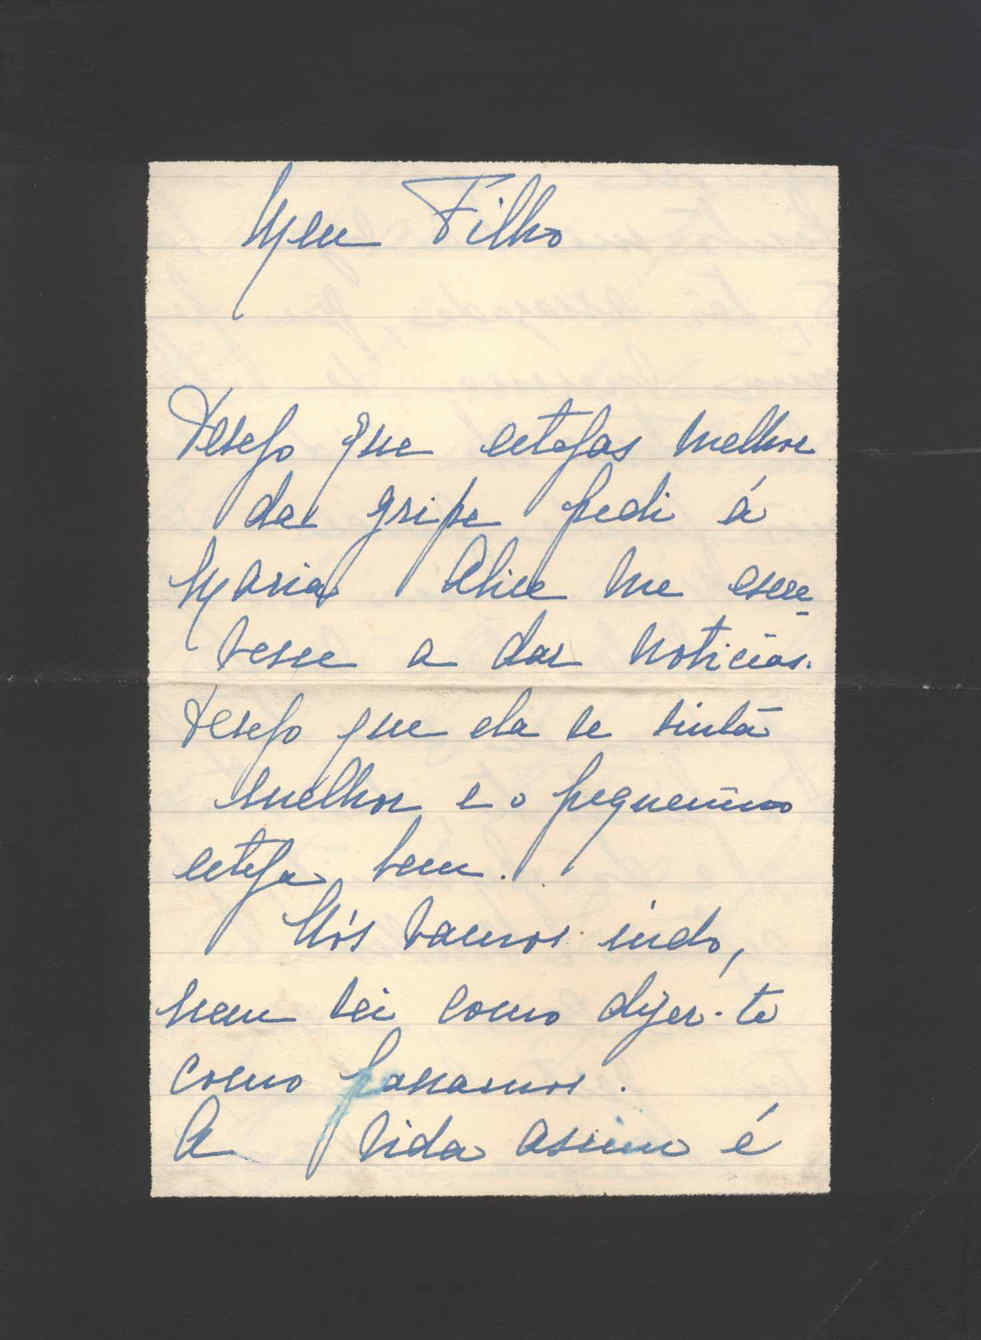 Meu Filho
Desejo que estejas melhor
da gripe pedi á
Maria Alice me escre_
vesse a dar noticias.
Desejo que ela se sinta
melhor e o pequenino
esteja bem.
Nós vamos indo,
nem sei como dizer-te
como passamos.
A vida assim é